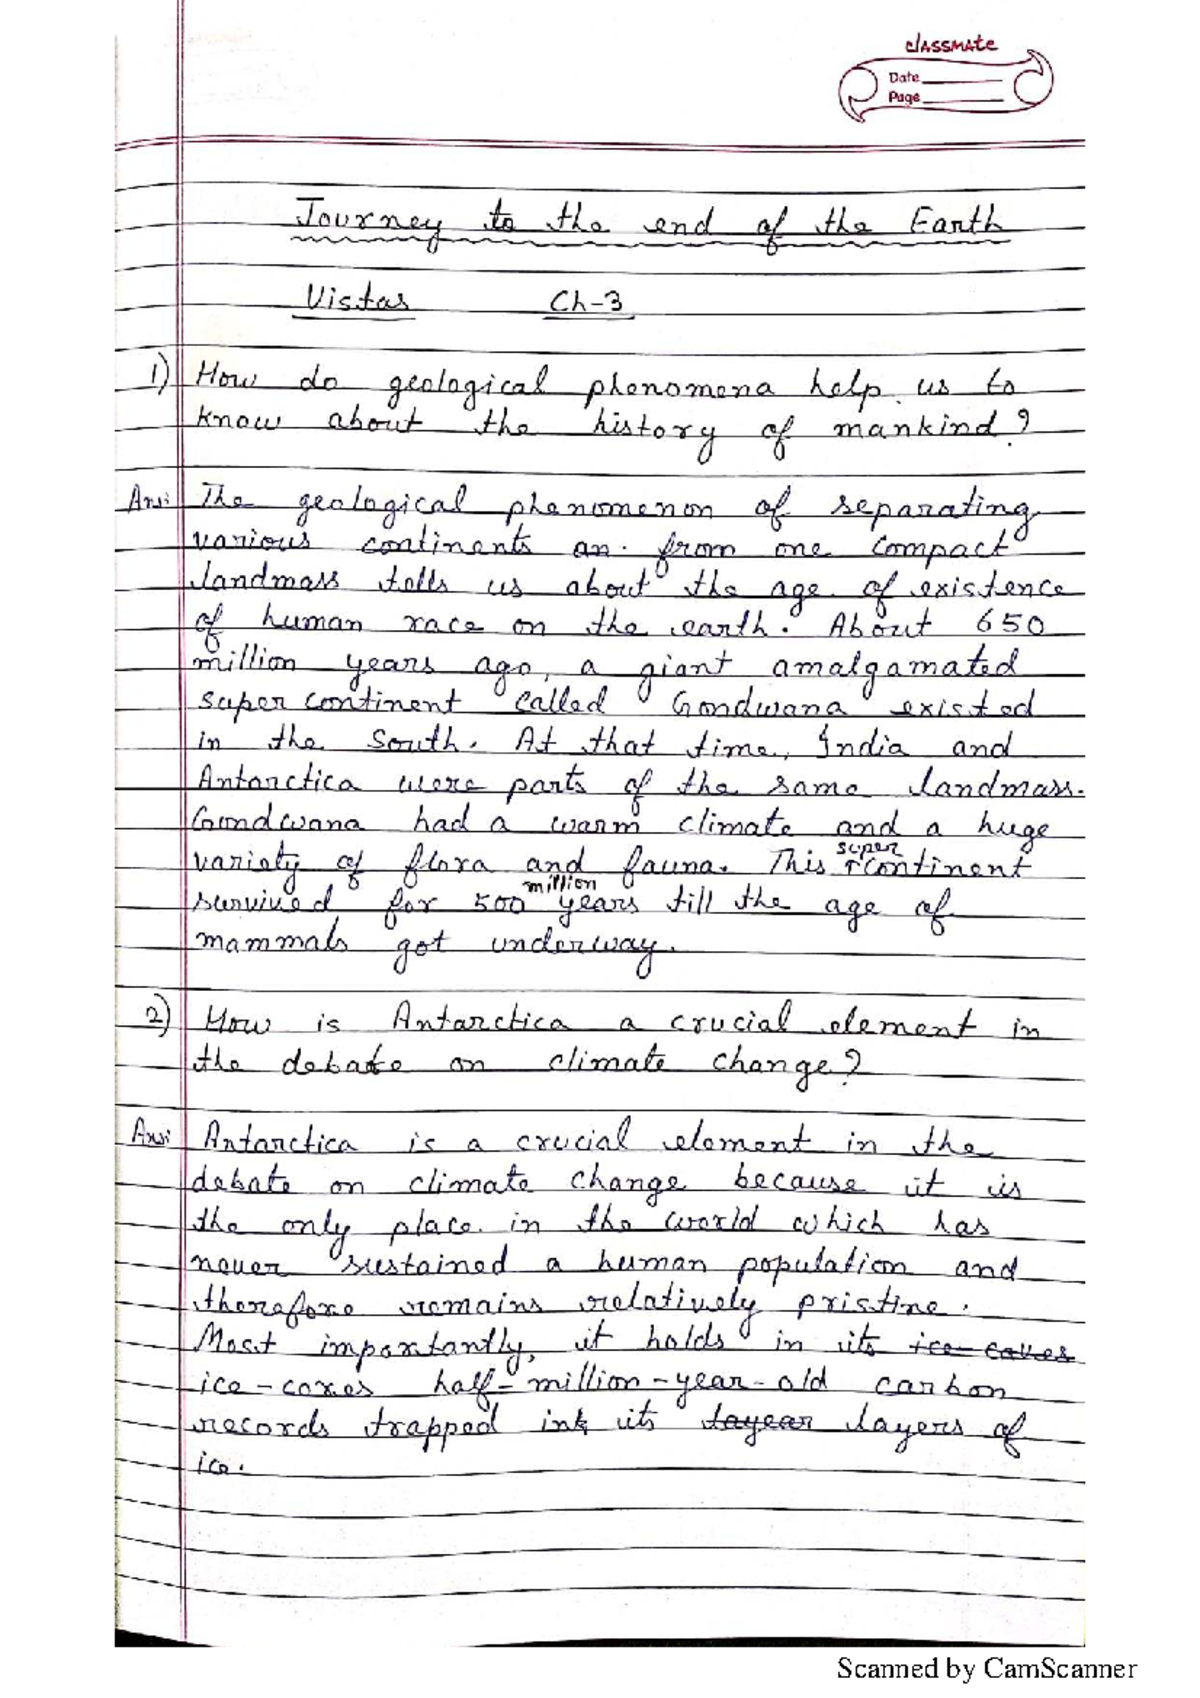 classmate
Date
Page
Journey to the end of the Earth
Vistas Ch-3
1) How do geological phenomena help us to
know about the history of mankind?
Ans: The geological phenomenon of separating
various continents an. from one compact
landmass tells us about the age of existence
of human race on the earth. About 650
million years ago, a giant amalgamated
super continent called Gondwana existed
in the South. At that time, India and
Antarctica were parts of the same landmass.
Gondwana had a warm climate and a huge
variety of flora and fauna. This super continent
survived for 500 million years till the age of
mammals got underway.
2) How is Antarctica a crucial element in
the debate on climate change?
Ans: Antarctica is a crucial element in the
debate on climate change because it is
the only place in the world which has
never sustained a human population and
therefore remains relatively pristine.
Most importantly, it holds in its ice-caves
ice-cores half-million-year-old carbon
records trapped ink its layear layers of
ice.
Scanned by CamScanner